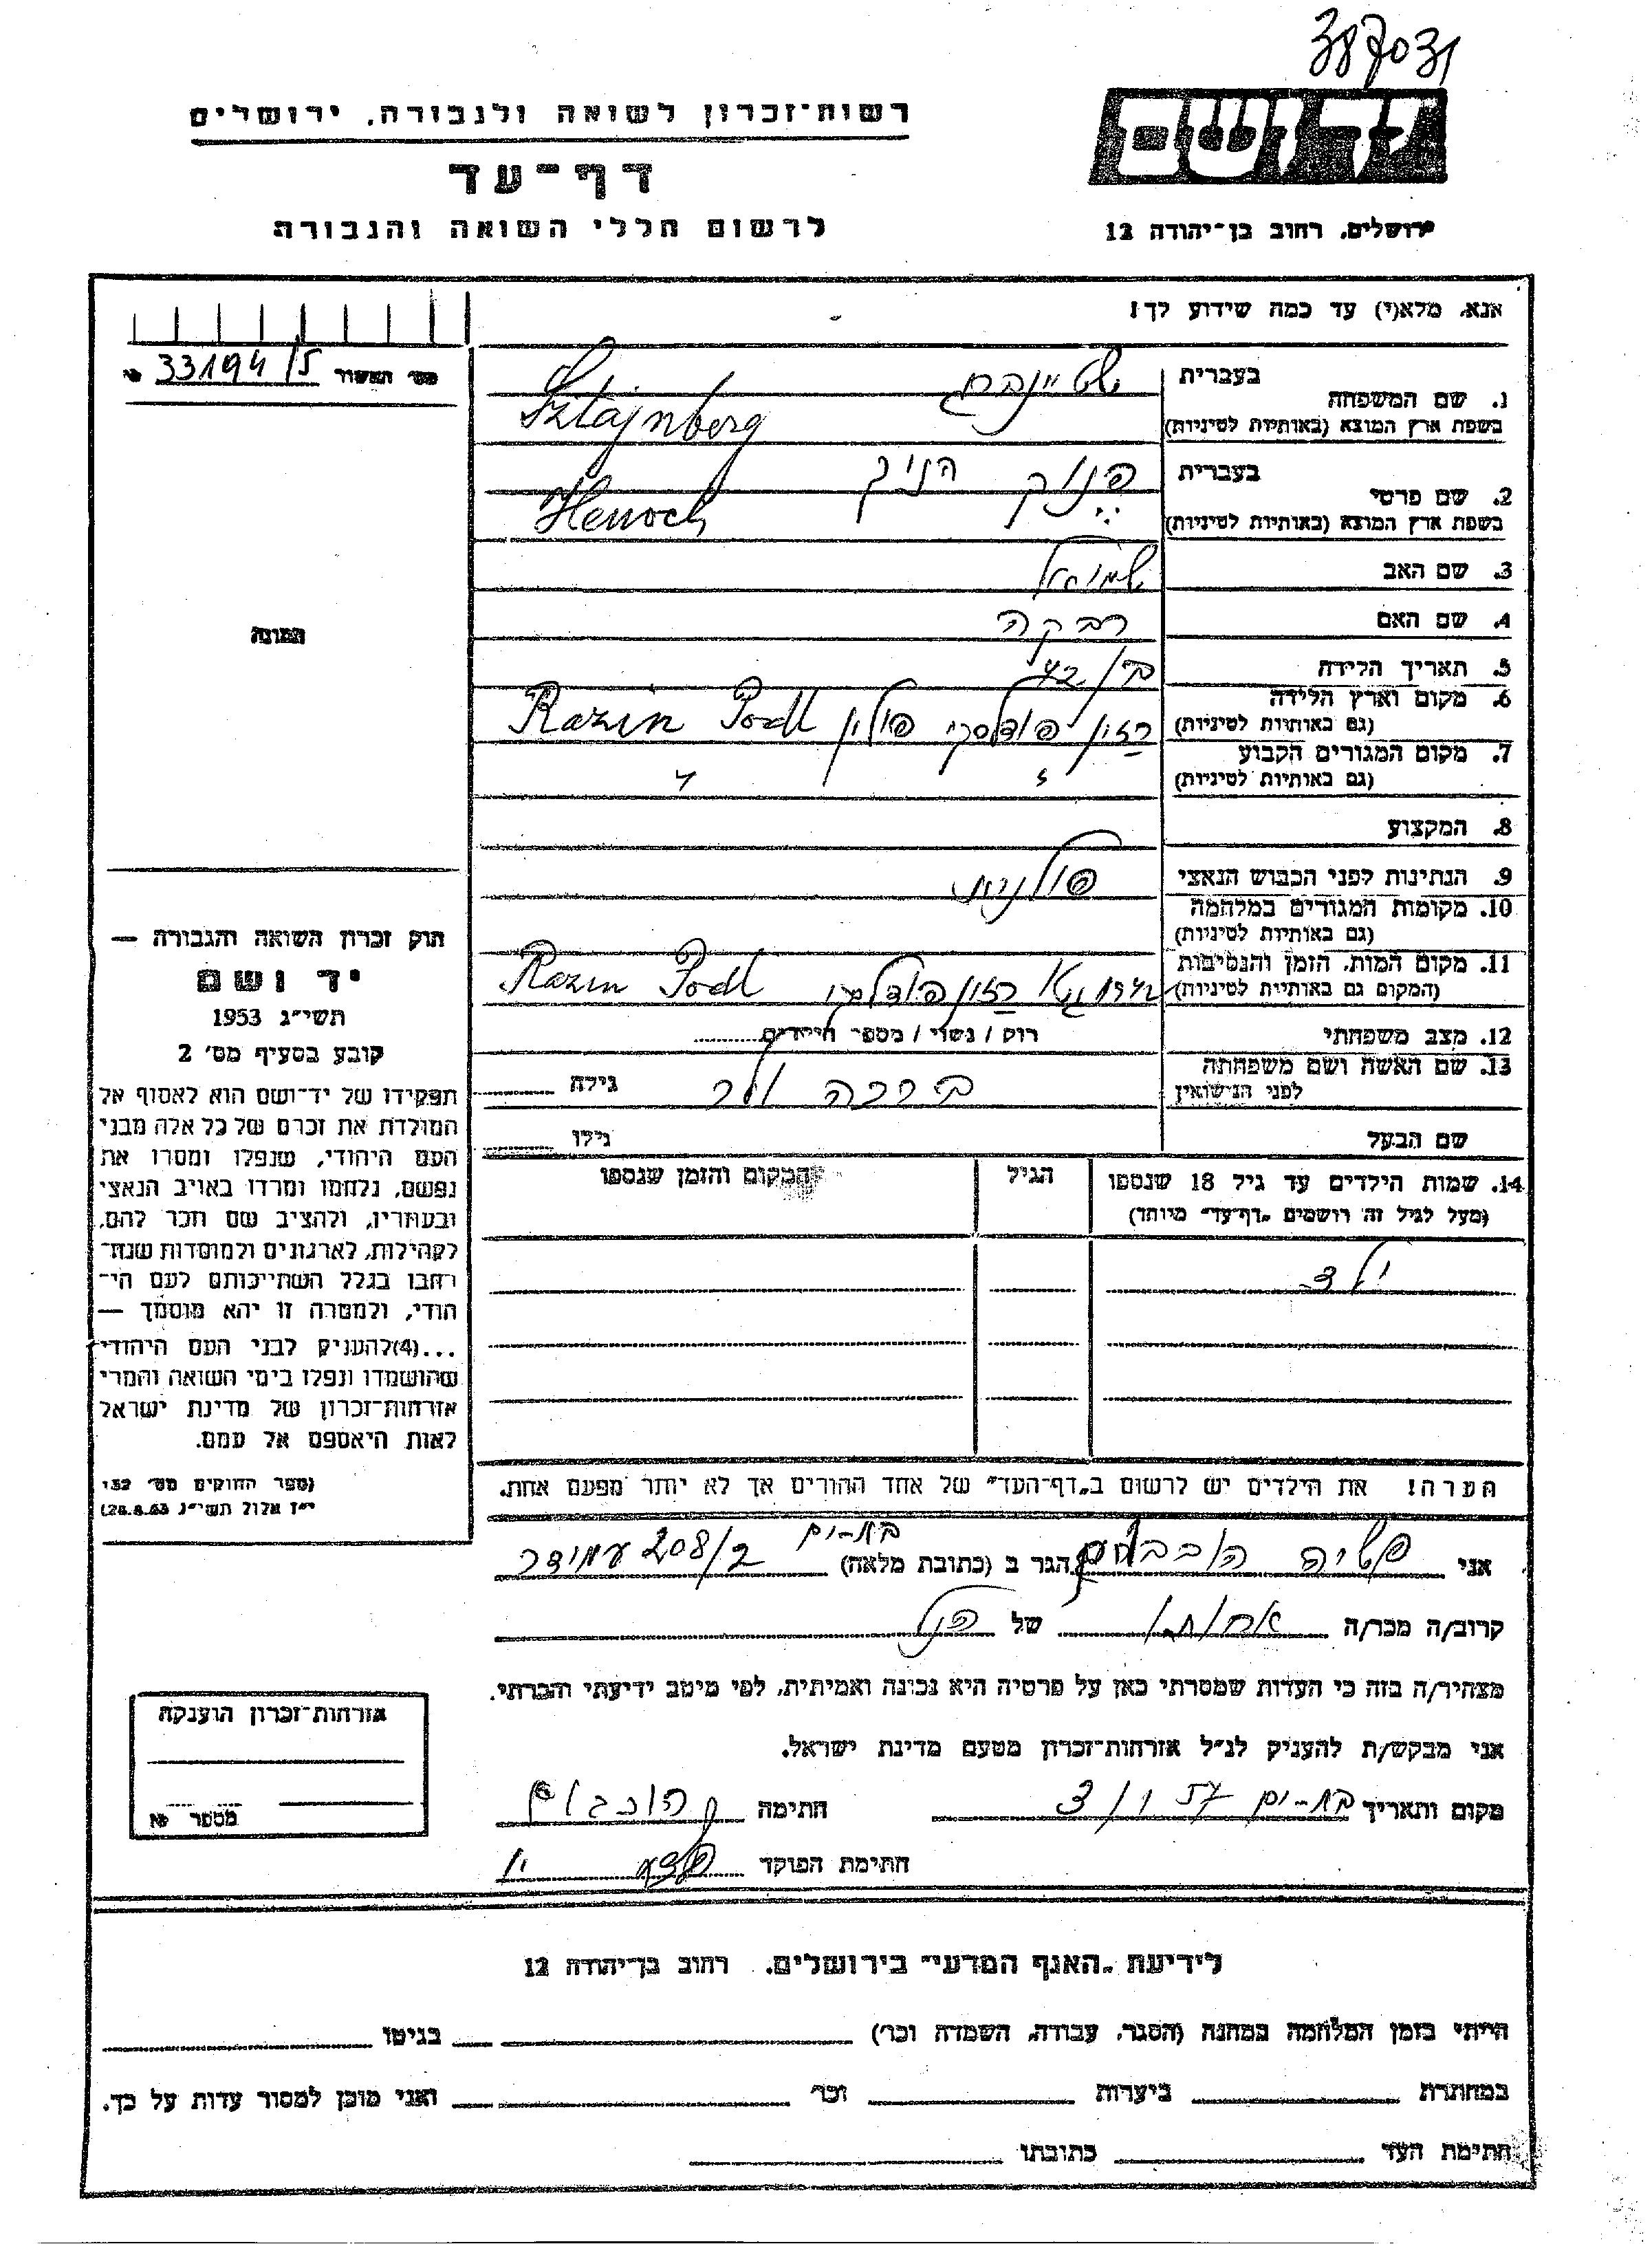 387031
רשות־זכרון לשואה ולגבורה, ירושלים
יד ושם
דף־עד
לרשום חללי השואה והגבורה
ירושלים, רחוב בן־יהודה 12
אנא, מלא(י) עד כמה שידוע לך!
מס' האשור № 33194/5
1. שם המשפחה בעברית שטיינברג
בשפת ארץ המוצא (באותיות לטיניות) Sztajnberg
2. שם פרטי בעברית הניך
בשפת ארץ המוצא (באותיות לטיניות) Henoch
3. שם האב שמואל
4. שם האם רבקה
5. תאריך הלידה בן 42
6. מקום וארץ הלידה (גם באותיות לטיניות) רזין פודלסקי פולין Razin Podl
7. מקום המגורים הקבוע (גם באותיות לטיניות) " "
8. המקצוע
9. הנתינות לפני הכבוש הנאצי פולנית
10. מקומות המגורים במלחמה (גם באותיות לטיניות)
11. מקום המות, הזמן והנסיבות (המקום גם באותיות לטיניות) רזין פודלסקי Razin Podl
12. מצב משפחתי רוק / נשוי / מספר הילדים
13. שם האשה ושם משפחתה לפני הנישואין ברכה גילה
שם הבעל גילו
14. שמות הילדים עד גיל 18 שנספו הגיל המקום והזמן שנספו
(מעל לגיל זה רושמים "דף־עד" מיוחד)
ילד
הערה! את הילדים יש לרשום ב"דף־העד" של אחד ההורים אך לא יותר מפעם אחת.
התמונה
חוק זכרון השואה והגבורה —
יד ושם
תשי"ג 1953
קובע בסעיף מס' 2
תפקידו של יד־ושם הוא לאסוף אל
המולדת את זכרם של כל אלה מבני
העם היהודי, שנפלו ומסרו את
נפשם, נלחמו ומרדו באויב הנאצי
ובעוזריו, ולהציב שם וזכר להם,
לקהילות, לארגונים ולמוסדות שנח־
רבו בגלל השתייכותם לעם הי־
הודי, ולמטרה זו יהא מוסמך —
...(4)להעניק לבני העם היהודי
שהושמדו ונפלו בימי השואה והמרי
אזרחות־זכרון של מדינת ישראל
לאות היאספם אל עמם.
(ספר החוקים מס' 132
י"ז אלול תשי"ג 28.8.53)
אני הגר ב (כתובת מלאה) בת-ים עמידר 208/2
קרוב/ה מכר/ה אחותו של הנ"ל
מצהיר/ה בזה כי העדות שמסרתי כאן על פרטיה היא נכונה ואמיתית, לפי מיטב ידיעתי והכרתי.
אני מבקש/ת להעניק לנ"ל אזרחות־זכרון מטעם מדינת ישראל.
מקום ותאריך בת-ים חתימה
חתימת הפוקד
אזרחות־זכרון הוענקה
מספר №
לידיעת "האגף המדעי" בירושלים, רחוב בן־יהודה 12
הייתי בזמן המלחמה במחנה (הסגר, עבודה, השמדה וכו') בגיטו
במחתרת ביערות וכו' ואני מוכן למסור עדות על כך.
חתימת העד כתובתו